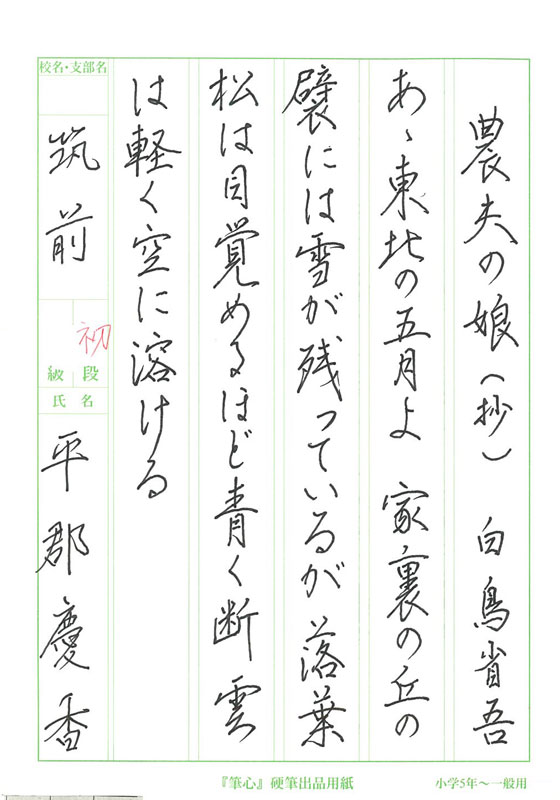 農夫の娘（抄）　白鳥省吾
あゝ東北の五月よ　家裏の丘の
襞には雪が残っているが　落葉
松は目覚めるほど青く断雲
は軽く空に溶ける
校名・支部名
筑前
初
級　段
氏名
平郡慶香
『筆心』硬筆出品用紙
小学5年〜一般用